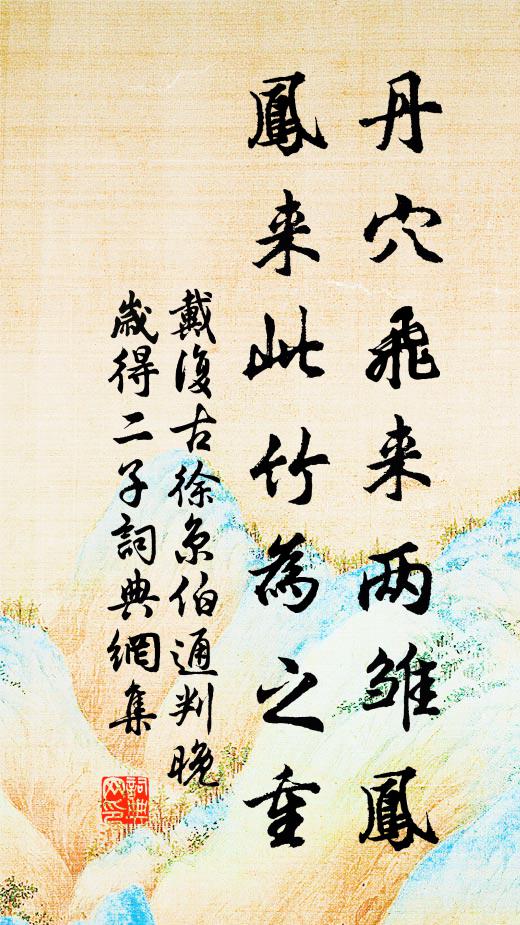 丹穴飛来两雏鳳
鳳来此竹為之重
戴復古徐京伯通判晚
歲得二子詞典網集
詞典网印